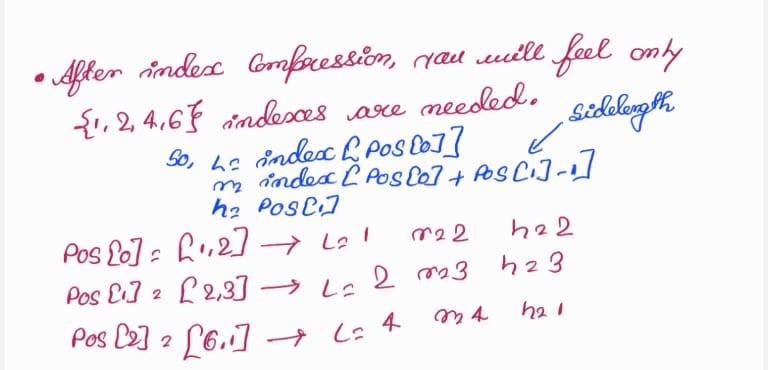 • After index compression, you will feel only
{1, 2, 4, 6} indexes are needed.
sidelength
So, L = index [ pos[0]]
r = index [ pos[0] + pos[1] - 1]
h = pos[1]
pos[0] = [1, 2] → L = 1 r = 2 h = 2
pos[1] = [2, 3] → L = 2 r = 3 h = 3
pos[2] = [6, 1] → L = 4 r = 4 h = 1